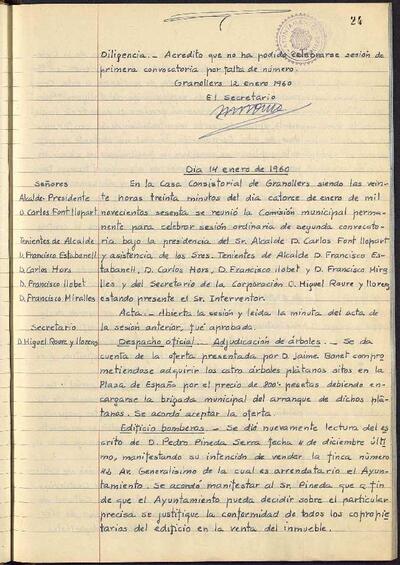 24
Diligencia.- Acredito que no ha podido celebrarse sesión de
primera convocatoria por falta de número.
Granollers 12 enero 1960
El Secretario
Día 14 enero de 1960
Señores
Alcalde-Presidente
D. Carlos Font Llopart
Tenientes de Alcalde
D. Francisco Estabanell
D. Carlos Hors
D. Francisco Llobet
D. Francisco Miralles
Secretario
D. Miguel Raure y Llorens
En la Casa Consistorial de Granollers siendo las vein-
te horas treinta minutos del dia catorce de enero de mil
novecientos sesenta se reunió la Comisión municipal perma-
nente para celebrar sesión ordinaria de segunda convocato-
ria bajo la presidencia del Sr. Alcalde D. Carlos Font Llopart
y asistencia de los Sres. Tenientes de Alcalde D. Francisco Es-
tabanell, D. Carlos Hors, D. Francisco Llobet y D. Francisco Mira-
lles y del Secretario de la Corporación D. Miguel Raure y Llorens
estando presente el Sr. Interventor.
Acta.- Abierta la sesión y leida la minuta del acta de
la sesión anterior, fué aprobada.
Despacho oficial. Adjudicación de árboles.- Se da
cuenta de la oferta presentada por D. Jaime Bonet compro
metiendose adquirir los catro árboles plátanos sitos en la
Plaza de España por el precio de 800'- pesetas debiendo en-
cargarse la brigada municipal del arranque de dichos plá-
tanos. Se acordó aceptar la oferta.
Edificio bomberos.- Se dió nuevamente lectura del es
crito de D. Pedro Pineda Serra fecha 4 de diciembre últi
mo, manifestando su intención de vender la finca número
Av. Generalísimo de la cual es arrendatario el Ayun-
tamiento. Se acordó manifestar al Sr. Pineda que a fin
de que el Ayuntamiento pueda decidir sobre el particular
precisa se justifique la conformidad de todos los copropie-
tarios del edificio en la venta del inmueble.